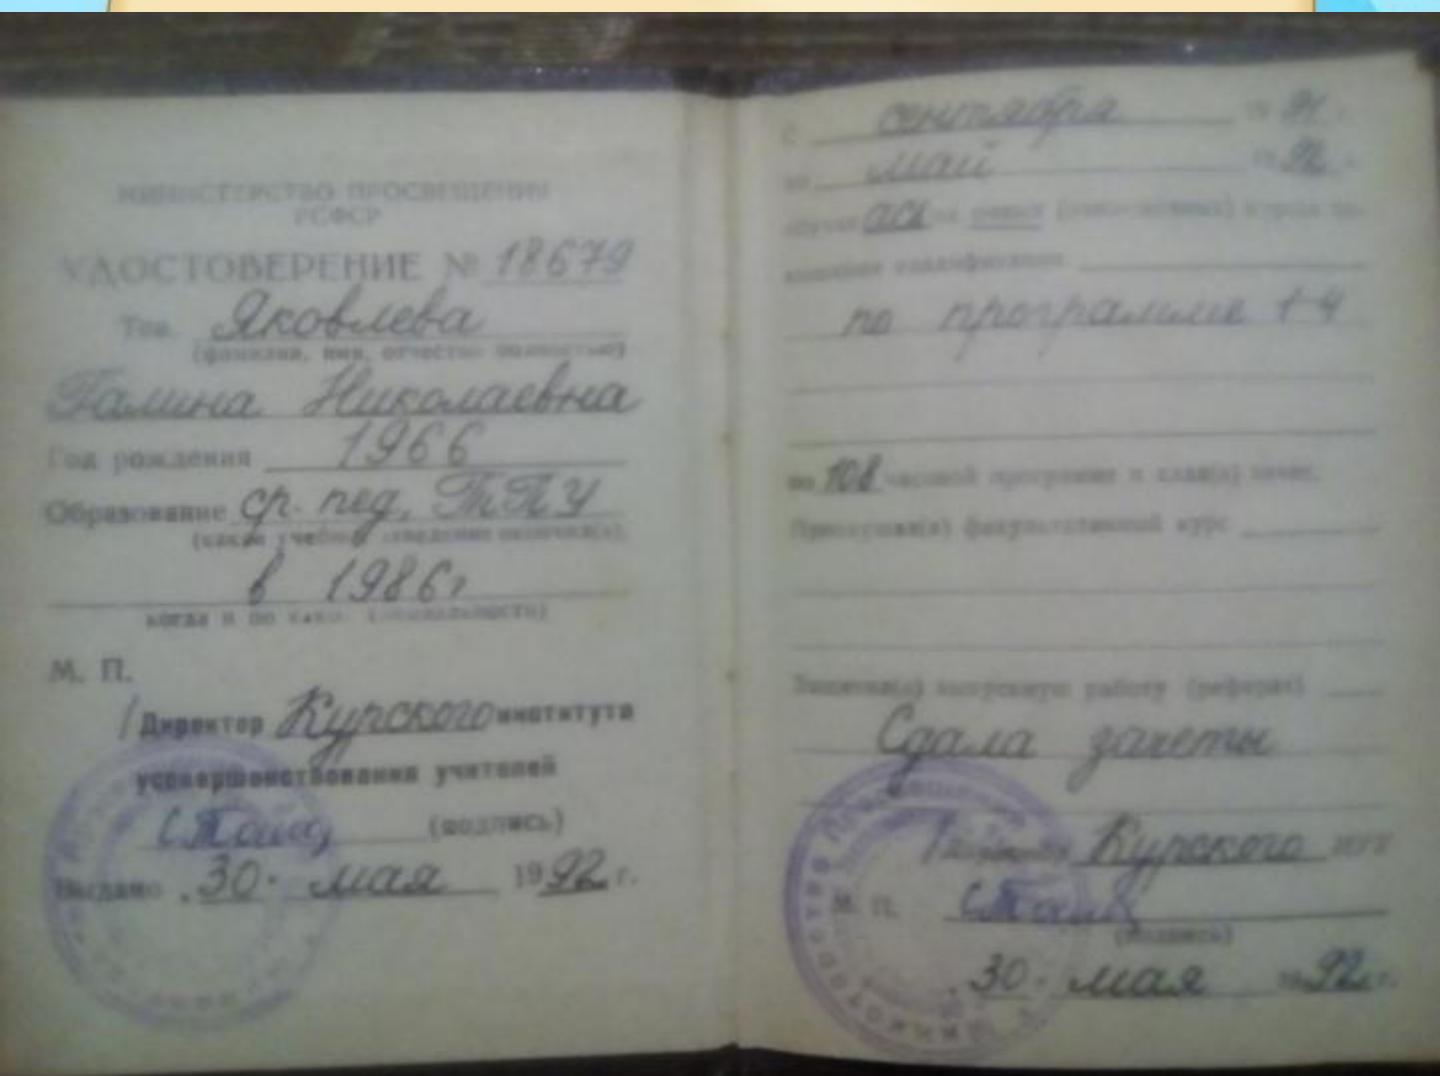 МИНИСТЕРСТВО ПРОСВЕЩЕНИЯ
РСФСР
УДОСТОВЕРЕНИЕ № 18679
Тов. Яковлева
(фамилия, имя, отчество полностью)
Галина Николаевна
Год рождения 1966
Образование ср. пед, ТПУ
(какое учебное заведение окончил(а),
в 1986г
когда и по какой специальности)
М. П.
Директор Курского института
усовершенствования учителей
(подпись)
Выдано 30. мая 1992 г.
с сентября 1991 г.
по май 1992 г.
обучалась на очных курсах
по программе 1-4
по 108 часовой программе и сдал(а) зачет.
Прослушал(а) факультативный курс
Защитил(а) выпускную работу (реферат)
Сдала зачеты
Курского ИУУ
М. П.
(подпись)
30. мая 1992 г.